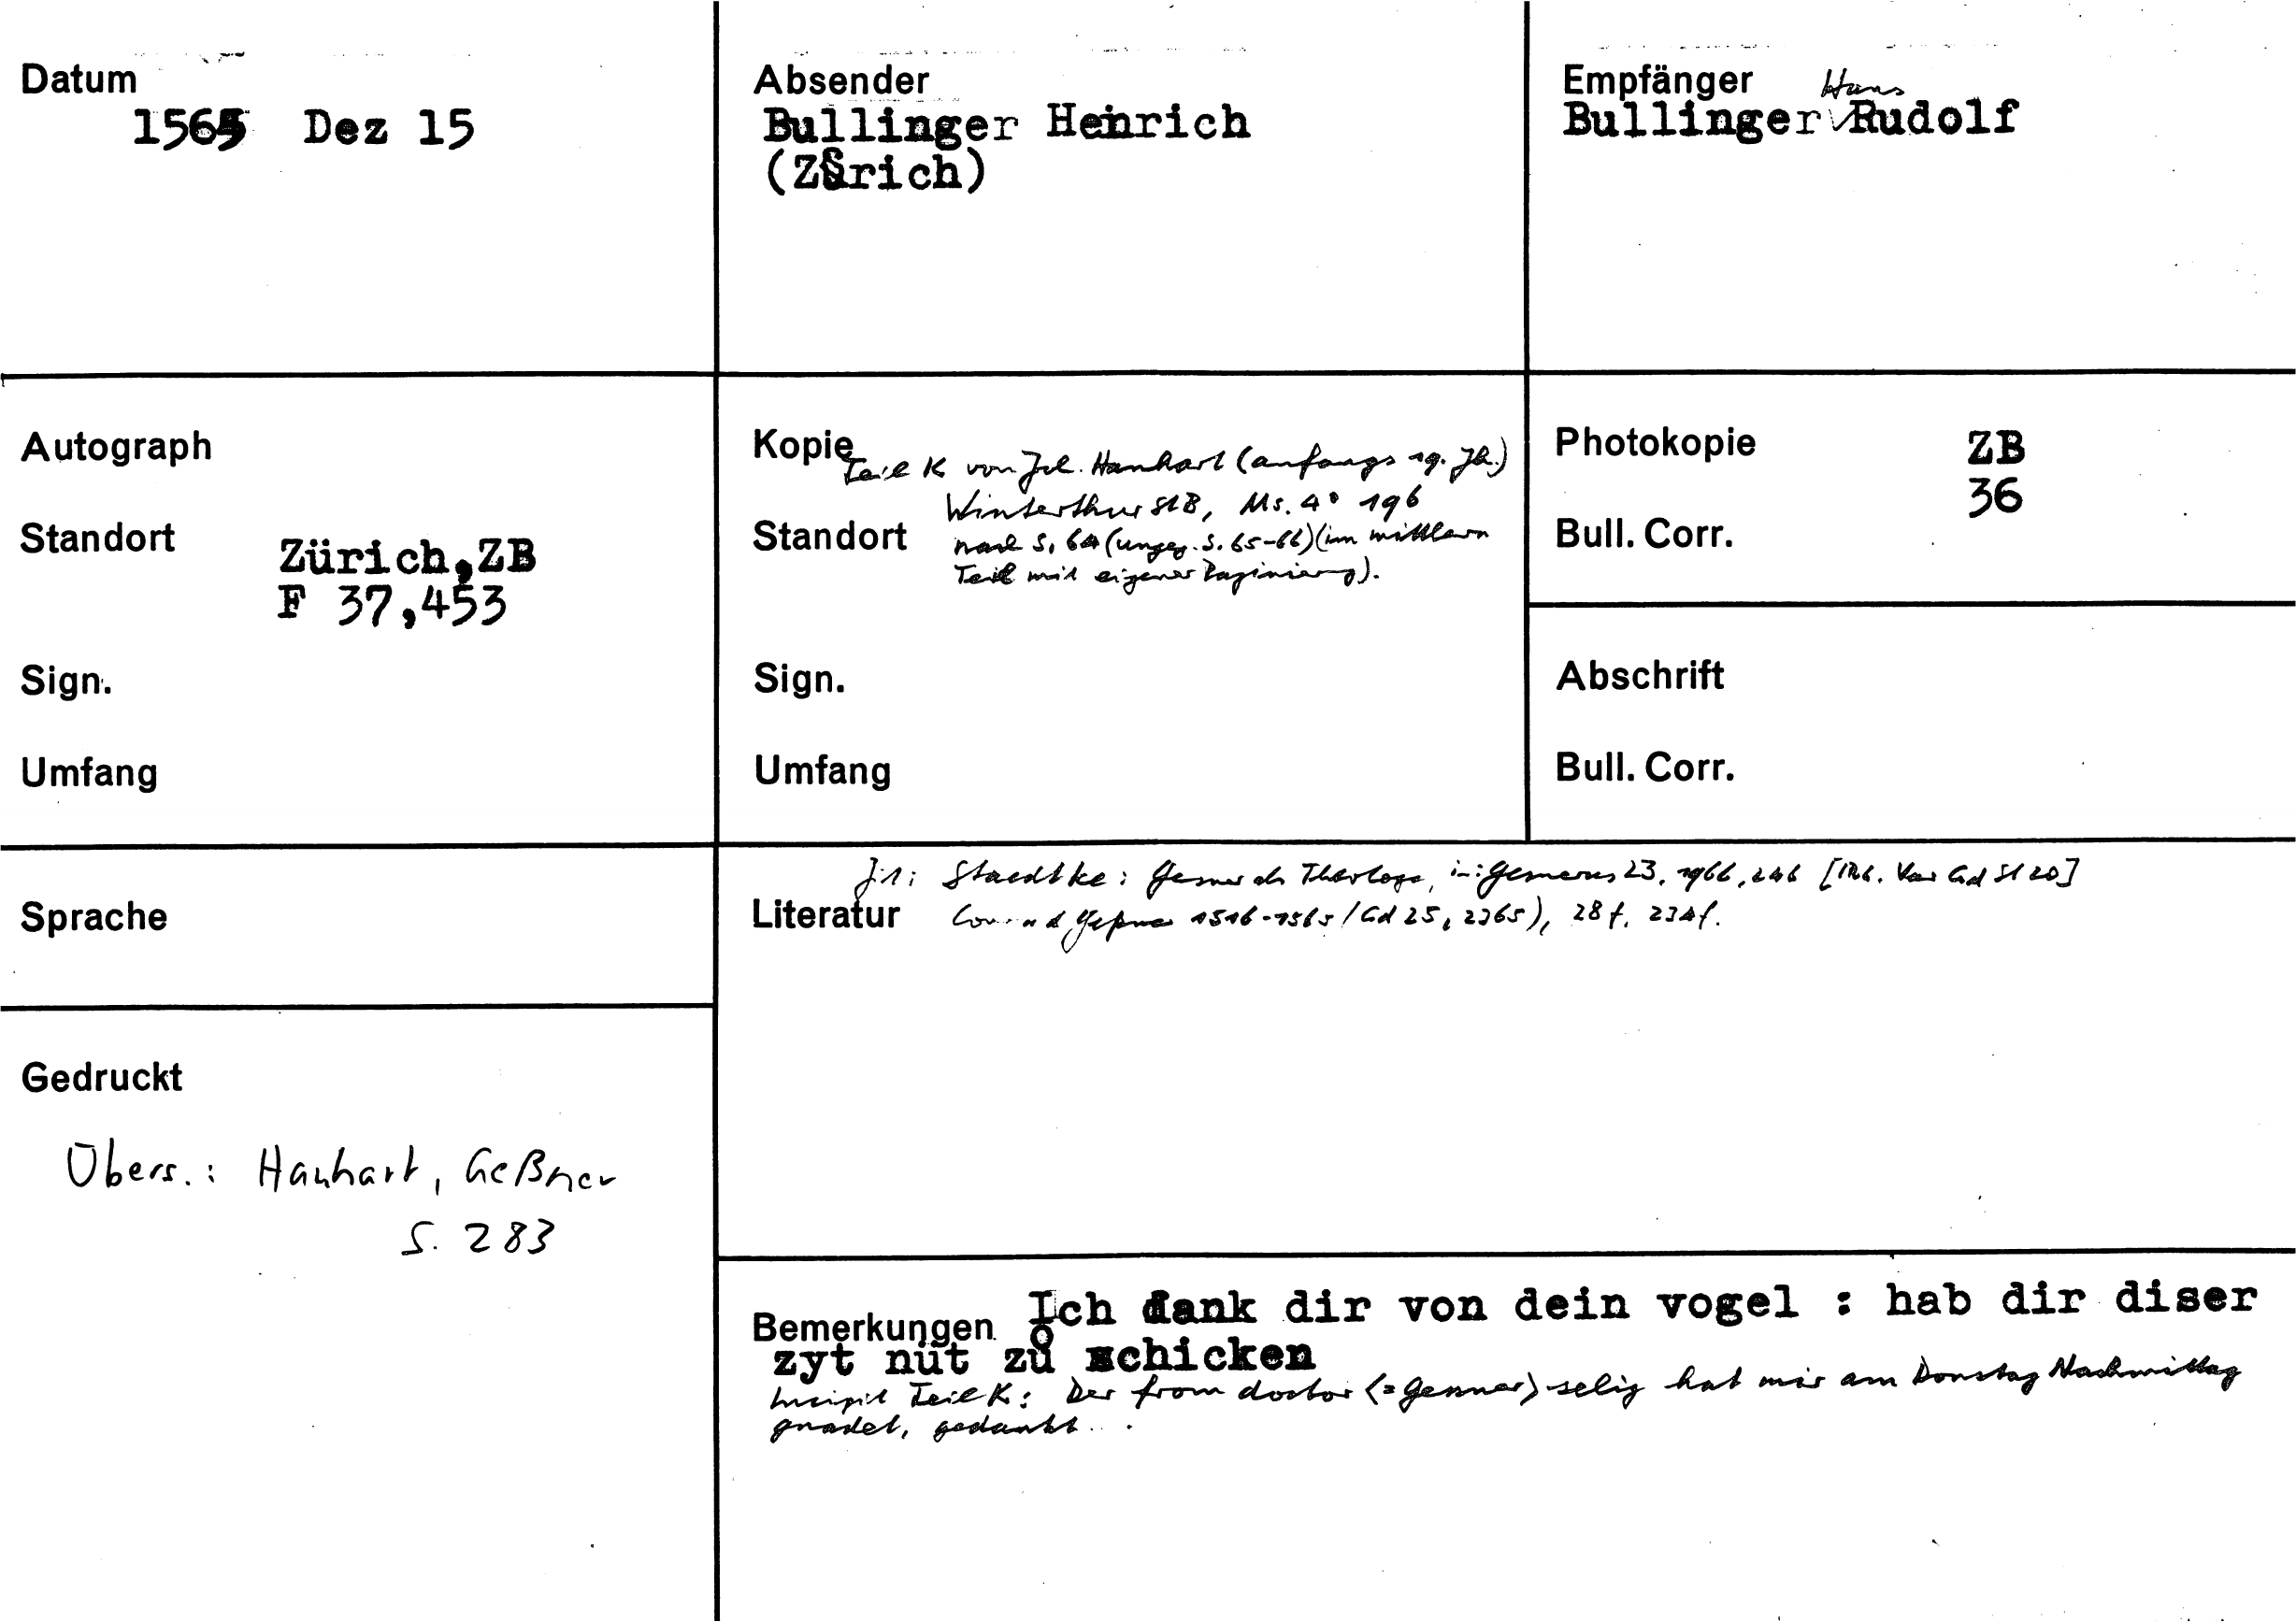 Datum
1565 Dez 15
Absender
Bullinger Heinrich
(Zürich)
Empfänger Hans
Bullinger Rudolf
Autograph
Standort
Zürich,ZB
F 37,453
Sign.
Umfang
Kopie
Teil K von Joh. Hanhart (anfangs 19. Jh.)
Winterthur StB, Ms. 4° 196
Standort nach S. 64 (ungez. S. 65-66) (im mittlern
Teil mit eigener Paginierung).
Sign.
Umfang
Photokopie ZB
36
Bull. Corr.
Abschrift
Bull. Corr.
Sprache
Literatur
Staedtke: Gesner als Theologe, in: Gesnerus 23, 1966, 246
1516-1565 / Gd 25, 2365), 28f. 234f.
Gedruckt
Übers.: Hanhart, Geßner
S. 283
Bemerkungen Ich dank dir von dein vogel : hab dir diser
zyt nüt zů schicken
Incipit Teil K: Der from doctor (= Gessner) selig hat mir am Donstag Nachmittag
gnadet, gedankt...